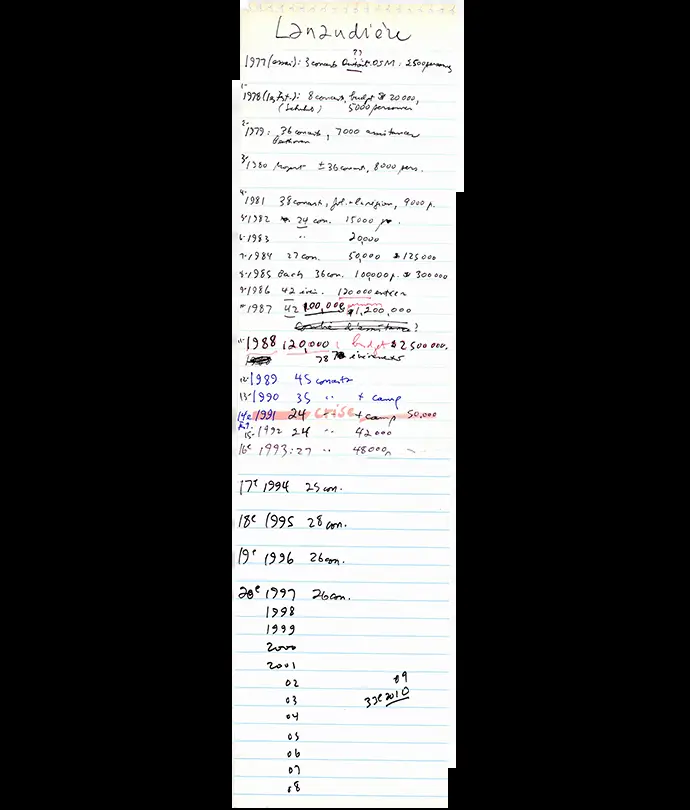 Lanaudière
??
1977 (essai): 3 concerts OSM: 2500 personnes
1- 1978 (1er Fest.): 8 concerts, budget $ 20 000,
(Schubert) 5000 personnes
2- 1979: 36 concerts, 7000 assistances
Beethoven
3- 1980 Mozart ± 36 concerts, 8000 pers.
4- 1981 38 concerts, fol. + la région, 9000 p.
5- 1982 24 con. 15000 p.
6- 1983 " 20,000
7- 1984 27 con. 50,000 $ 125 000
8- 1985 Bach 36 con. 100,000 p. $ 300 000
9- 1986 42 évén. 120 000 entrées
10- 1987 42 100,000 $1,200,000
?
11- 1988 120,000 budget $ 2 500 000.
78 événements
12- 1989 45 concerts
13- 1990 35 " + camp
14e 1991 24 " crise + camp 50,000
15- 1992 24 " 42 000
16e 1993: 27 " 48000 p
17e 1994 25 con.
18e 1995 28 con.
19e 1996 26 con.
20e 1997 26 con.
1998
1999
2000
2001
02 09
03 33e 2010
04
05
06
07
08